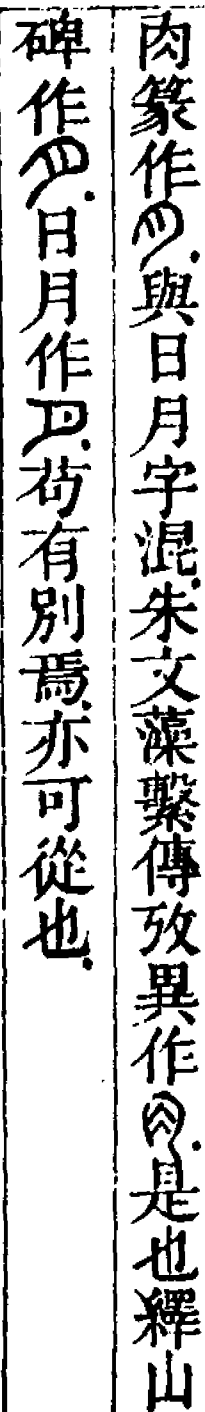 肉篆作.與日月字混.朱文藻繫傳攷異作.是也繹山
碑作.日月作.苟有別焉.亦可從也.